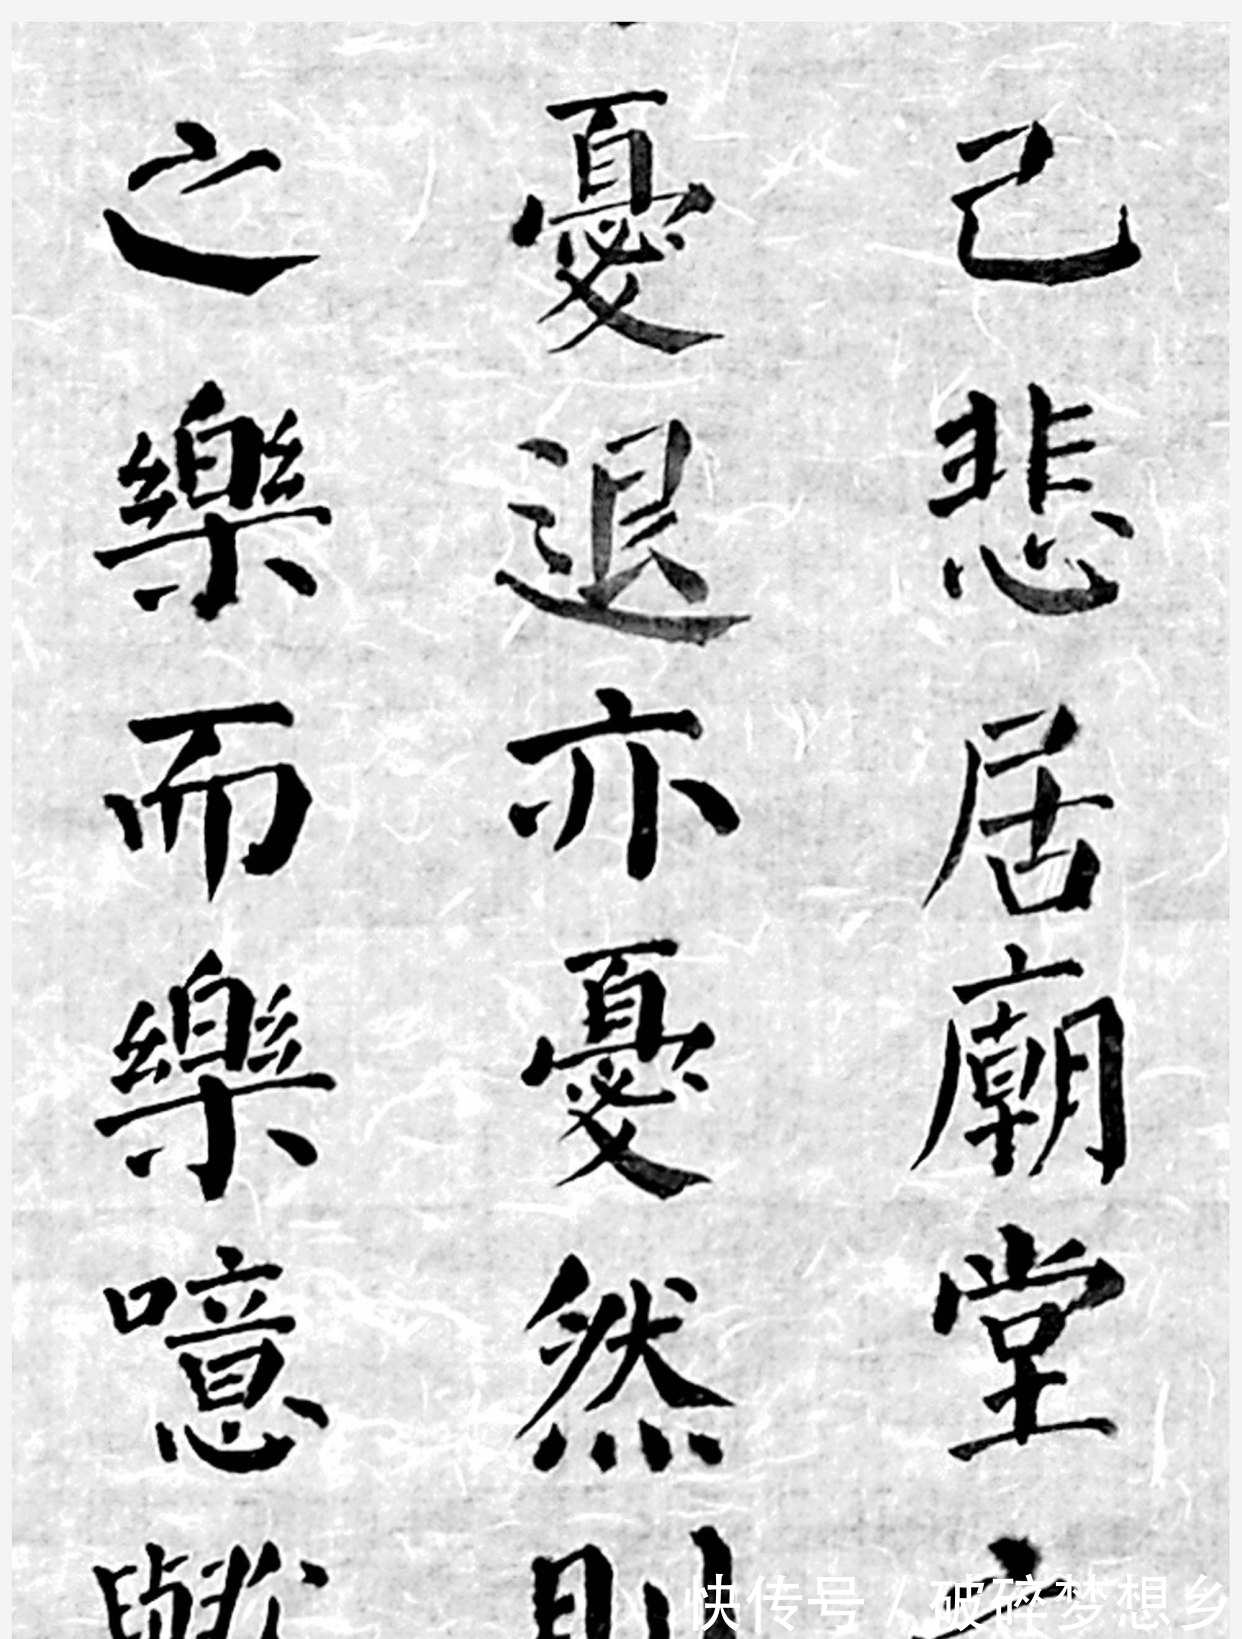 己悲居廟堂之
憂退亦憂然則
之樂而樂噫
快传号 / 破碎梦想乡